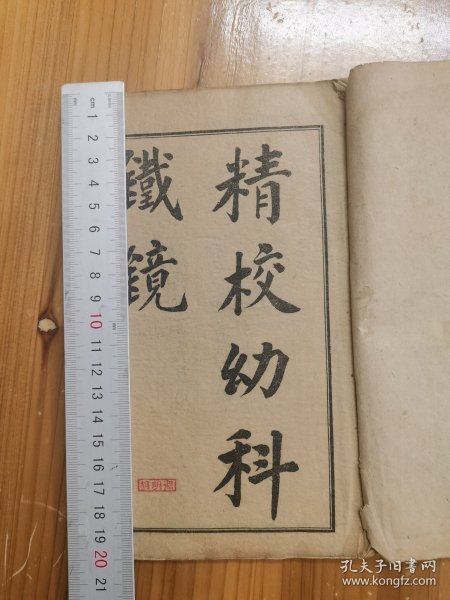 精校幼科
鐵鏡
cm
1
2
3
4
5
6
7
8
9
10
11
12
13
14
15
16
17
18
19
20
21
孔夫子旧书网
www.kongfz.com